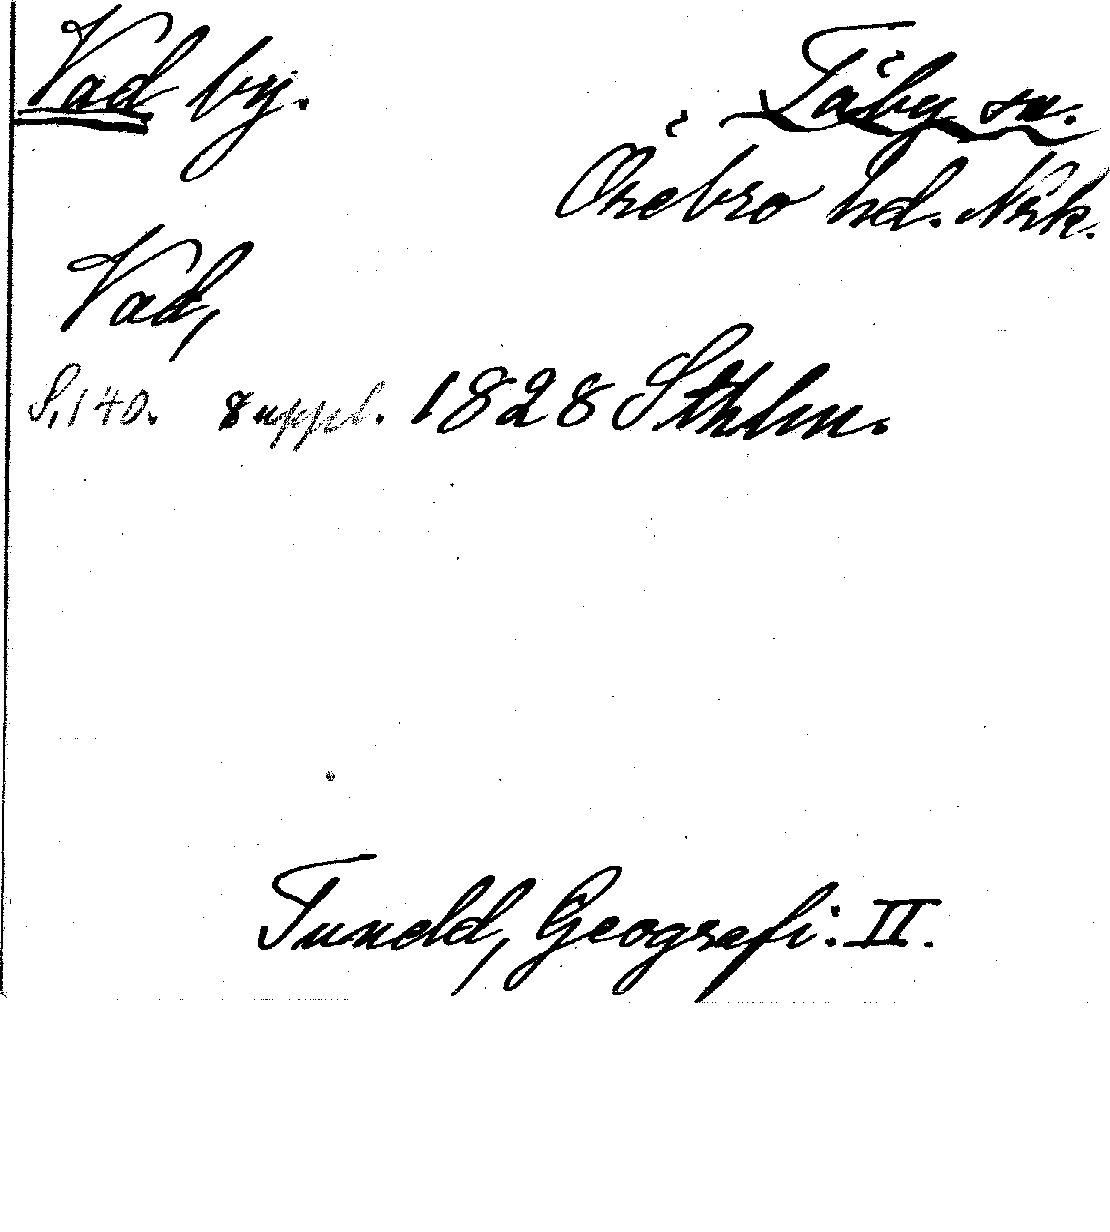 Vad by.
Täby sn.
Örebro hd. Nrk.
Vad,
S. 140. 8 uppl. 1828 Sthlm.
Tuneld, Geografi: II.